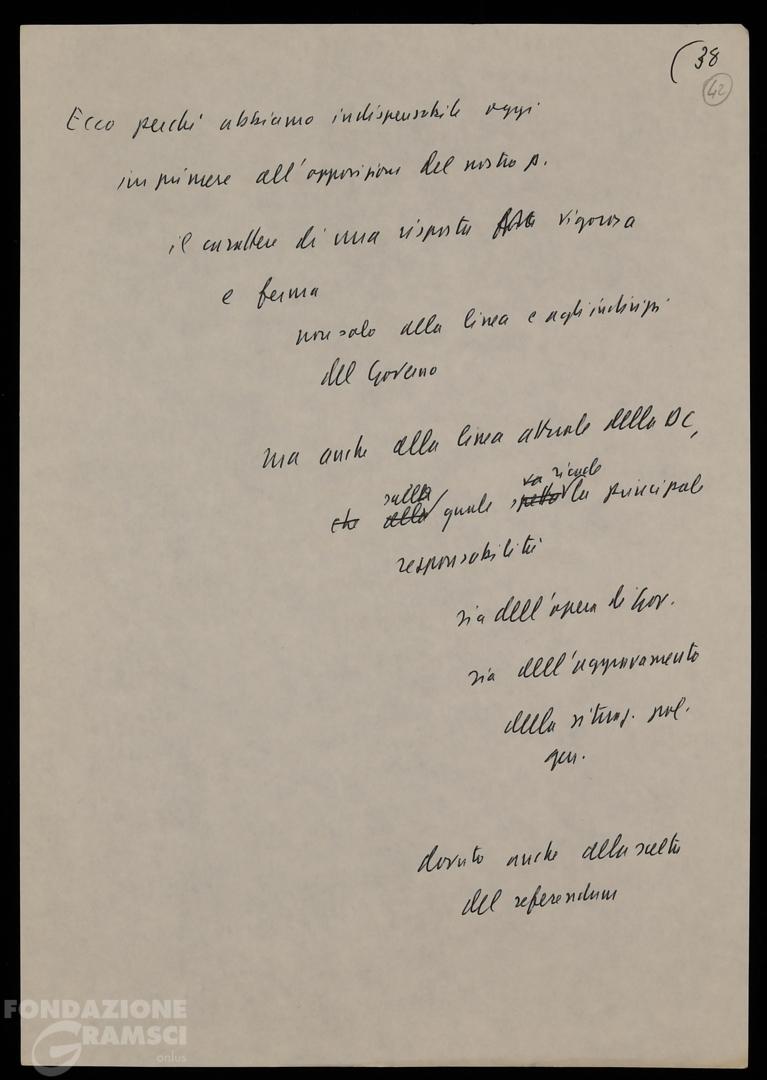 (38
42
Ecco perché abbiamo indispensabile oggi
imprimere all'opposizione del nostro p.
il carattere di una risposta vigorosa
e ferma
non solo alla linea e agli indirizzi
del Governo
ma anche alla linea attuale della DC,
sulla va ricade
che alla quale spetta la principale
responsabilità
sia dell'opera di Gov.
sia dell'aggravamento
della situaz. pol.
gen.
dovuto anche alla scelta
del referendum
FONDAZIONE
GRAMSCI
onlus